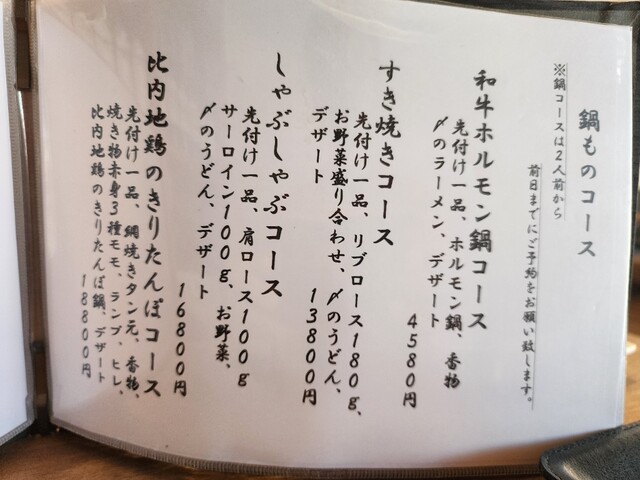 鍋ものコース
※鍋コースは2人前から
前日までにご予約をお願い致します。
和牛ホルモン鍋コース
先付け一品、ホルモン鍋、香物
〆のラーメン、デザート
4580円
すき焼きコース
先付け一品、リブロース180g、
お野菜盛り合わせ、〆のうどん、
デザート
13800円
しゃぶしゃぶコース
先付け一品、肩ロース100g
サーロイン100g、お野菜、
〆のうどん、デザート
16800円
比内地鶏のきりたんぽコース
先付け一品、網焼きタン元、香物、
焼き物赤身3種モモ、ランプ、ヒレ、
比内地鶏のきりたんぽ鍋、デザート
18800円